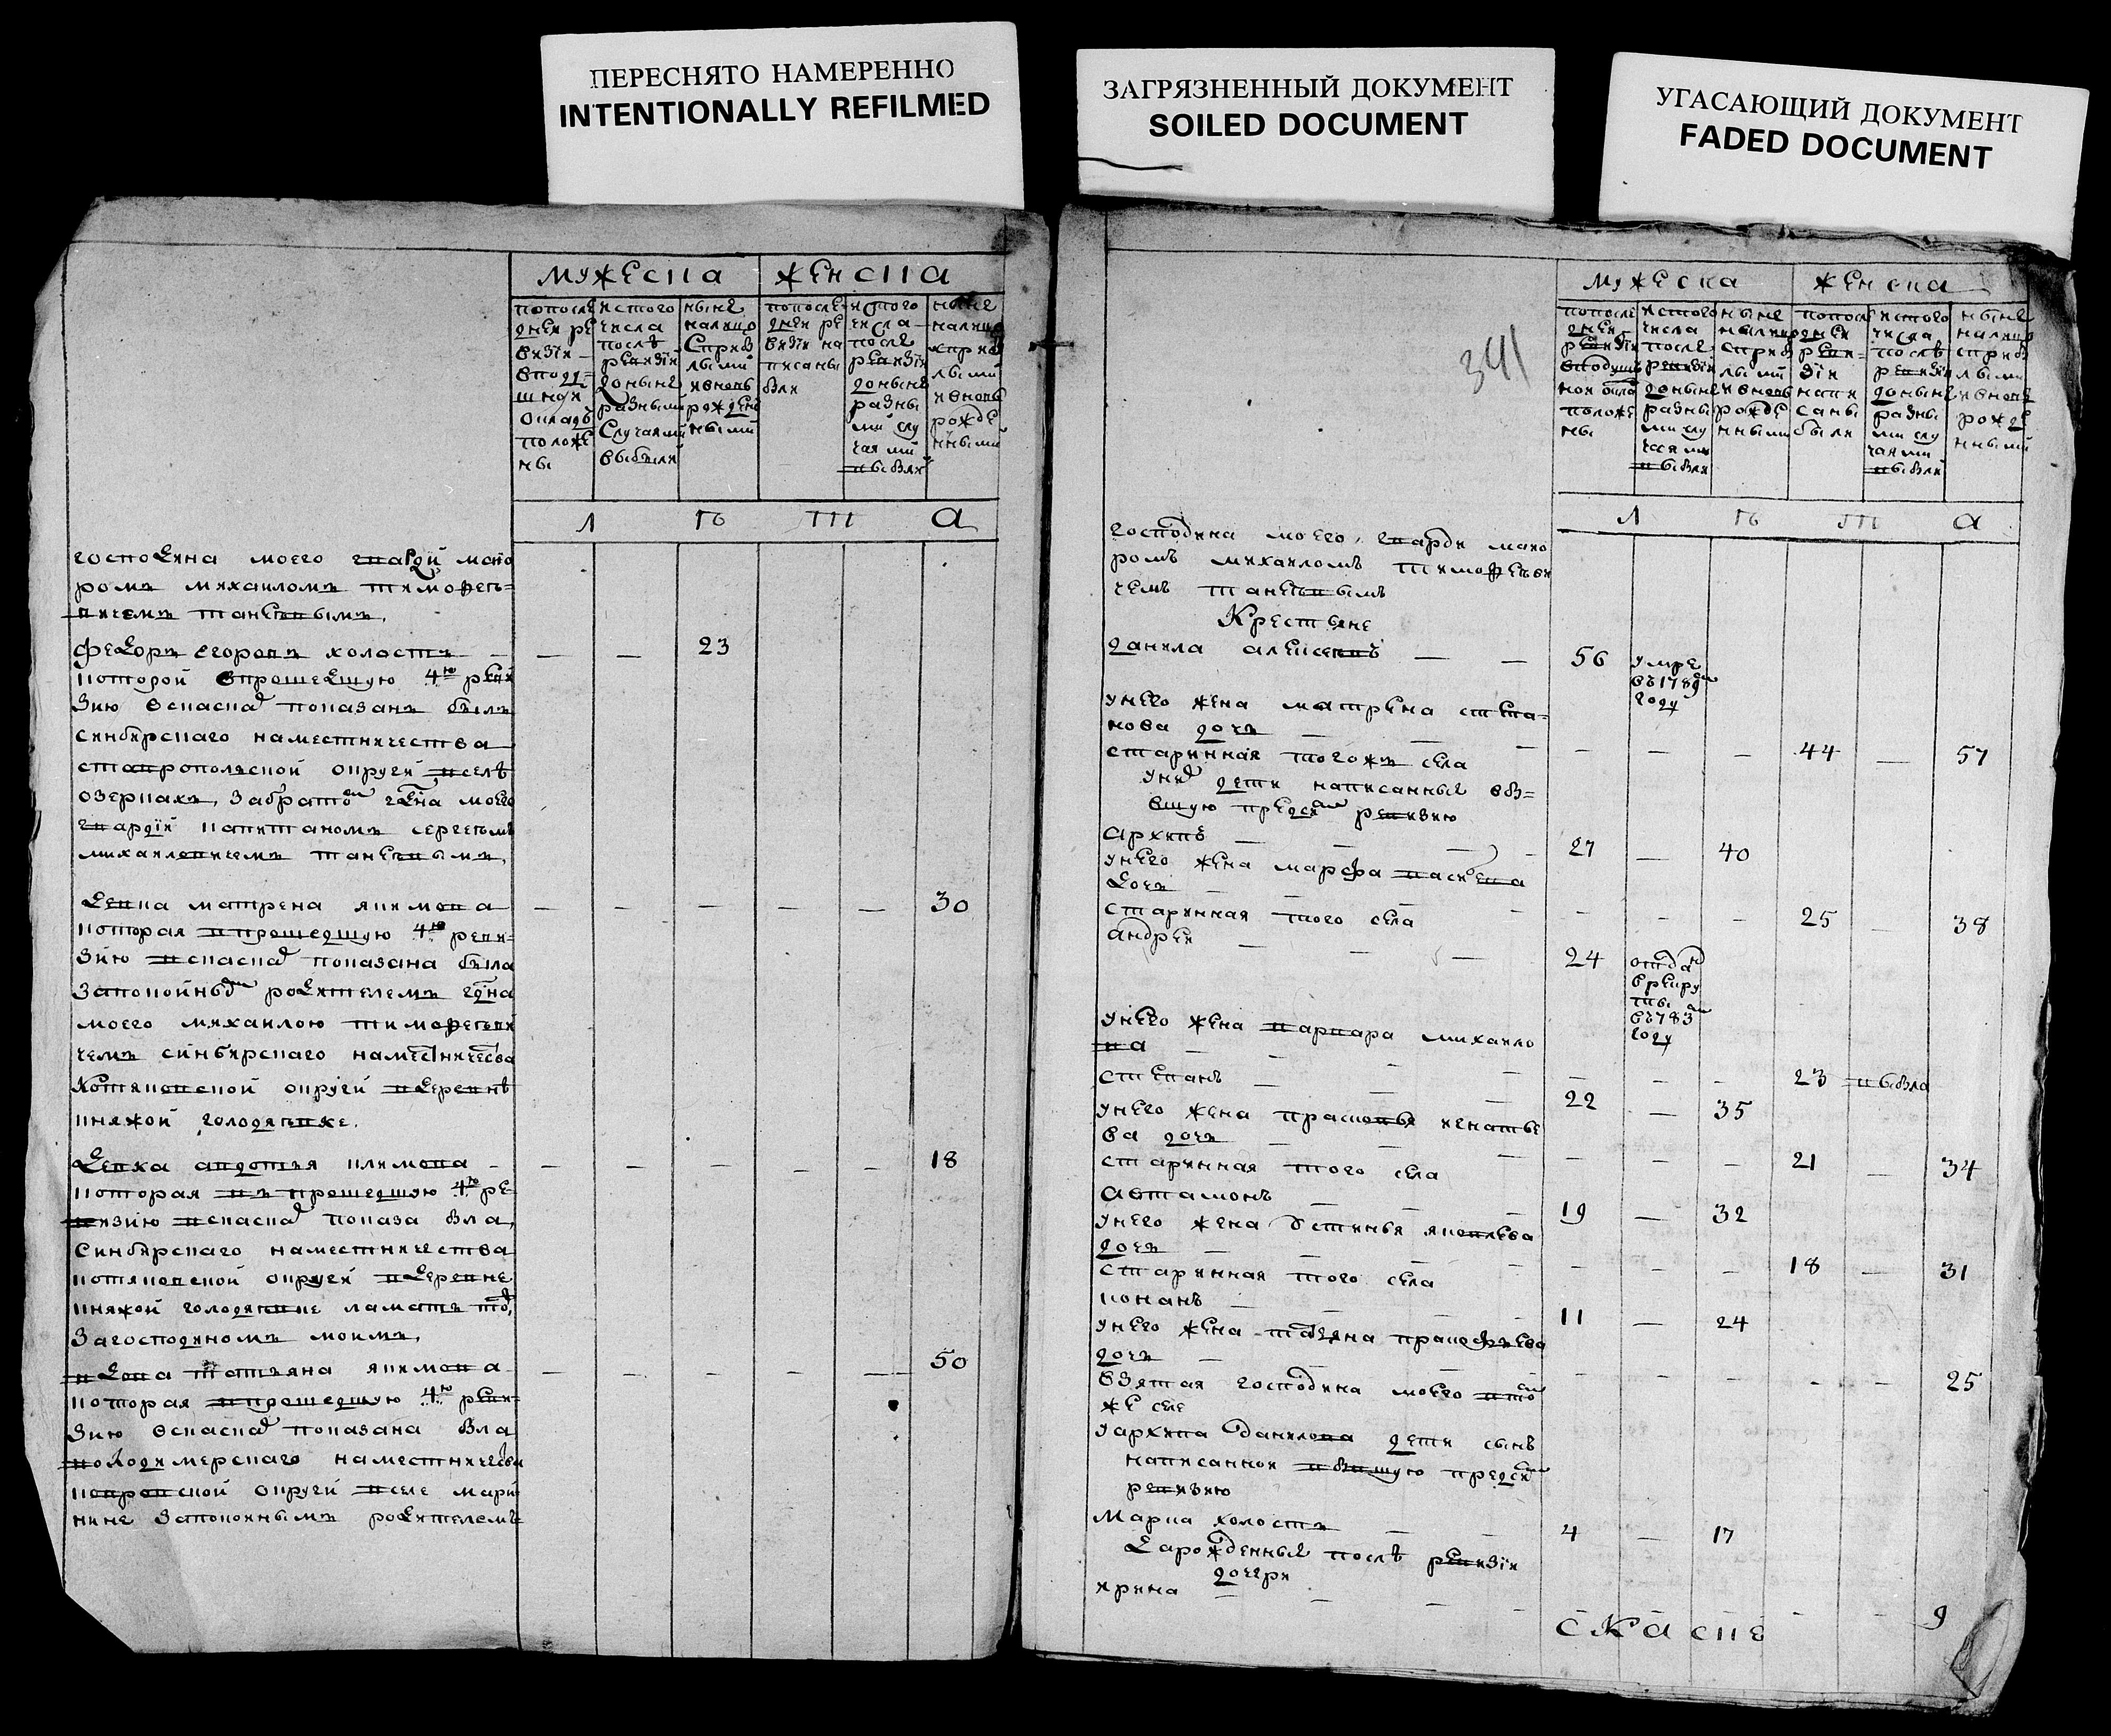 ПЕРЕСНЯТО НАМЕРЕННО
INTENTIONALLY REFILMED
ЗАГРЯЗНЕННЫЙ ДОКУМЕНТ
SOILED DOCUMENT
УГАСАЮЩИЙ ДОКУМЕНТ
FADED DOCUMENT
мужеска женска
попосле
дней ре
визiи
вподу=
шной
окладъ
положе
ны
истого
числа
послѣ
ревизiи
доныне
разными
случаями
выбыли
ныне
налицо
сприб
лыми
ивновь
рожден
ными
попосле
дней ре
визiи на
писаны
были
истого
числа
после
ревизiи
доныне
разны
ми слу
чаями
выбыли
ныне
налицо
сприб
лыми
ивновь
рожде
нными
Л Ѣ Т А
господина моего гвардiи маио
ромъ михаиломъ тимофеѣ=
вичемъ танеѣвымъ.
федоръ егоровъ холостъ — — — 23
которой впрошедшую 4ю реви
зию вспаспа показанъ былъ
синбирскаго наместничества
ставропольской округи вселѣ
озеркахъ, забратом гдна моего
гвардiи капитаномъ сергеѣмъ
михаиловичемъ танеѣвымъ,
девка матрена якимова — — — — — 30
которая впрошедшую 4ю реви=
зию показана была
запокойным родителемъ гдна
моего михаилою тимофеѣви
чемъ синбирскаго наместничества
котяковской округи вдеревнѣ
княжой голодяевке.
девка авдотья климова — — — — — 18
которая въ прошедшую 4ю ре
визию показа бла,
синбирскаго наместничества
котяковской округи вдеревне
княжой
загосподиномъ моимъ,
вдова татьяна якимова — — — — — 50
которая впрошедшую 4ю реви=
зию показана бла
володимерскаго наместничества
ковровской округи вселе мари
нине запокоинымъ родителемъ
341
мужеска женска
попосле
дней
ревизiи
вподуш
ной окла
положе
ны
истого
числа
после
ревизiи
доныне
разны
ми слу
чаями
выбыли
ныне
налицо
сприб
лыми
ивновь
рожде
нными
попосл
дней
реви=
зiи
напи
саны
были
истого
числа
послѣ
ревизiи
доныне
разны
ми слу
чаями
выбыли
ныне
налицо
сприб
лыми
ивновь
рожде
нными
Л Ѣ Т А
господина моего, гварди маио
ромъ михаиломъ тимофеѣви
чемъ танеѣвымъ
Крестьяне
данила алексеевъ — — 56 умре
въ1789м
году
унего жена матрена степа=
нова дочь — —
старинная тогожъ села — — — — 44 — 57
уних дети написанные вбы=
вшую предсим ревизию
архипъ — — — 27 — 40
унего жена марфа васильева
дочь — —
старинная того села — — — — 25 — 38
андрей — — 24 отдан
врекру
ты
въ783м
году
унего жена варвара михаило
ва — — — — — — 23 выбыла
степанъ — — 22 — 35
унего жена прасковья игнатье
ва дочь — —
старинная того села — — — — 21 — 34
автамонъ — — 19 — 32
унего жена устинья яковлева
дочь — —
старинная того села — — — — 18 — 31
кононъ — — — 11 — 24
унего жена татьяна прокофьева
дочь — — —
взятая господина моего втом
же селе — — — — — 25
уархипа данилова дети сынъ
написанной вбывшую предсим
ревизию
марка холостъ — — 4 — 17
Зарожденные послѣ ревизiи
дочери
ирина — — — — — 9
скаске